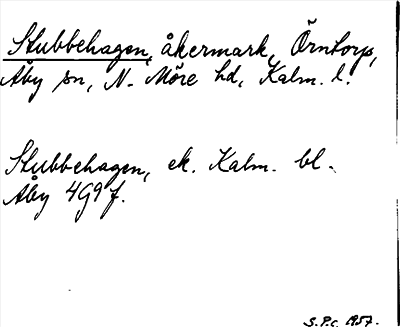 Stubbehagen, åkermark, Örntorp,
Åby sn, N. Möre hd, Kalm. l.
Stubbehagen, ek. Kalm. bl.
Åby 4G9f.
S.P.c. 1957.